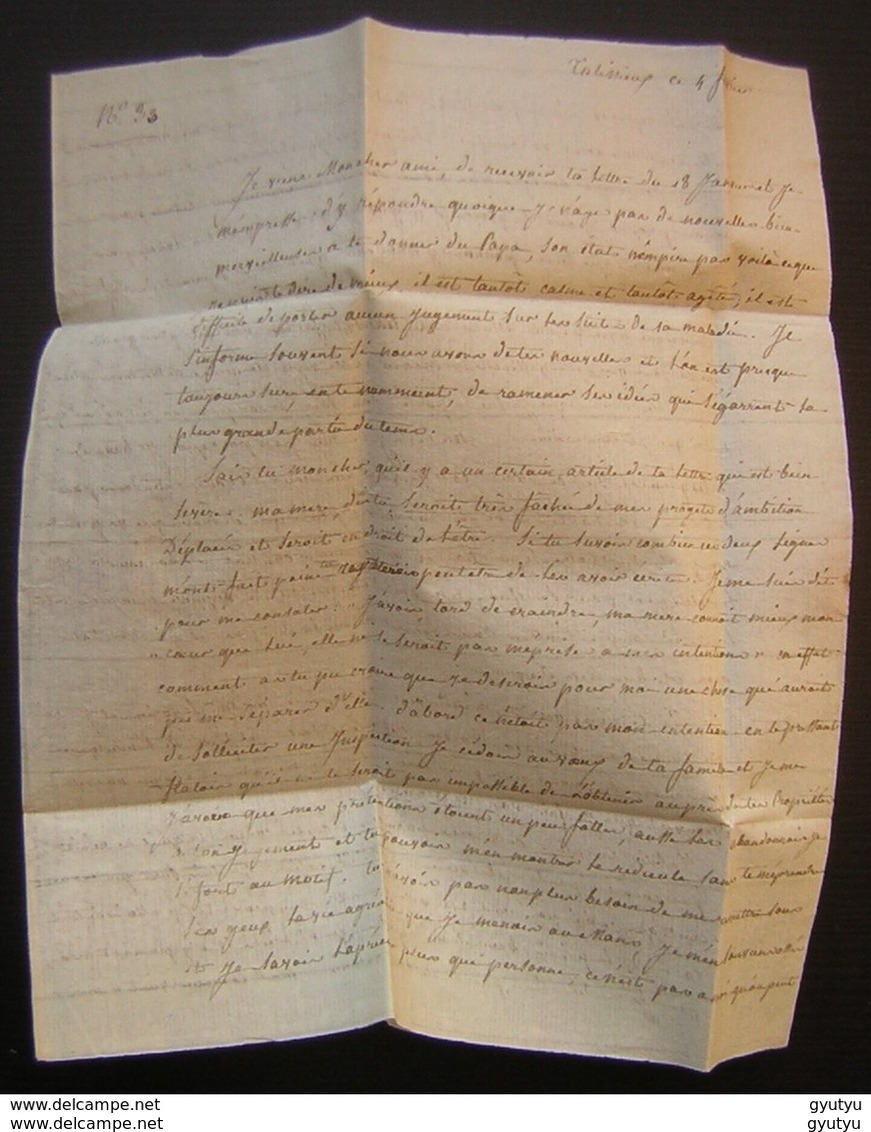 N° 33
ce 4
Je viens Mon cher ami, de recevoir ta lettre du 18 Janvier et Je
m'empresse d'y répondre quoique Je n'aye pas de nouvelles bien
merveilleuses a te donner du Papa, son état n'empire pas voila ceque
de mieux il est tantôt calme et tantôt agité; il est
difficile de porter aucun Jugement sur les suites de sa maladie. Je
s'informe souvent si nous avons de tes nouvelles et l'on est presque
toujours sure, en te nommant, de ramener ses idées qui s'égarrent la
plus grande partie du tems.
Sais tu mon cher, qu'il y a un certain article de ta lettre qui est bien
severe. ma mere, dis tu, seroit très fachée de mes progets d'ambition
Déplacée et seroit en droit de l'être. Si tu savois combien ces deux lignes
m'ont fait peine tu peutetre de les avoir écrites. Je me suis dit
pour me consoler: J'avois tord de craindre, ma mere connoit mieux mon
cœur que lui, elle ne se seroit pas méprise a mes intentions" en effet
comment as tu pu croire que Je desirois pour moi une chose qui auroit
pu me séparer d'elle. D'abord ce n'étoit pas mon intention en te
de solliciter une Inspection Je cédois au vœux de ta famille et Je me
flatois qu'il ne te seroit pas impossible de l'obtenir auprès de tes
J'avoue que mes prétentions étoient un peu folles, aussi les abandonnai Je
a ton Jugement et tu pouvois m'en montrer le ridicule sans te méprendre
si fort au motif. tu n'avois pas non plus besoin de me mettre sous
les yeux la vie agréable que Je menois au Mans, Je m'en
et Je savois l'apprécier plus que personne, ce n'est pas
gyutyu
gyutyu